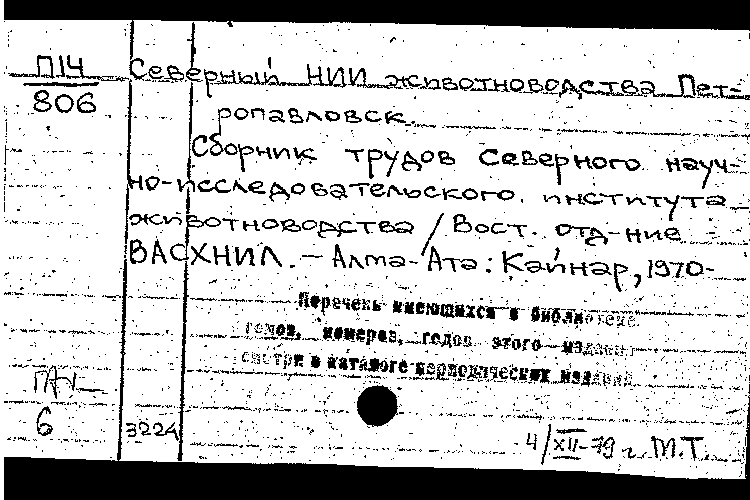 П14
806
Северный НИИ животноводства Пет-
ропавловск.
Сборник трудов Северного науч-
но-исследовательского института
животноводства / Вост. отд-ние
ВАСХНИЛ. — Алма-Ата: Кайнар, 1970-
Перечень имеющихся в библиотеке
томов, номеров, годов этого издания
смотри в каталоге периодических изданий
6
3224
4/XII-79 г. М.Т.